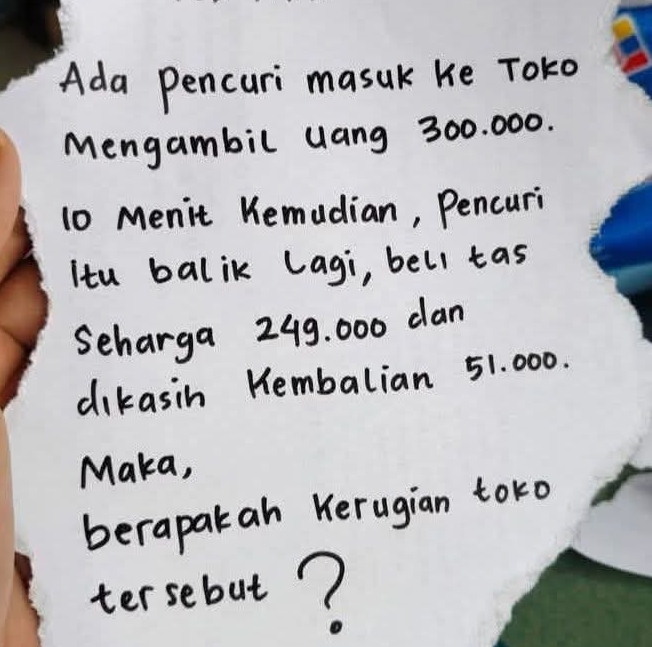 Ada Pencuri masuk ke Toko
Mengambil Uang 300.000.
10 Menit Kemudian, Pencuri
itu balik Lagi, beli tas
Seharga 249.000 dan
dikasih Kembalian 51.000.
Maka,
berapakah Kerugian toko
tersebut ?